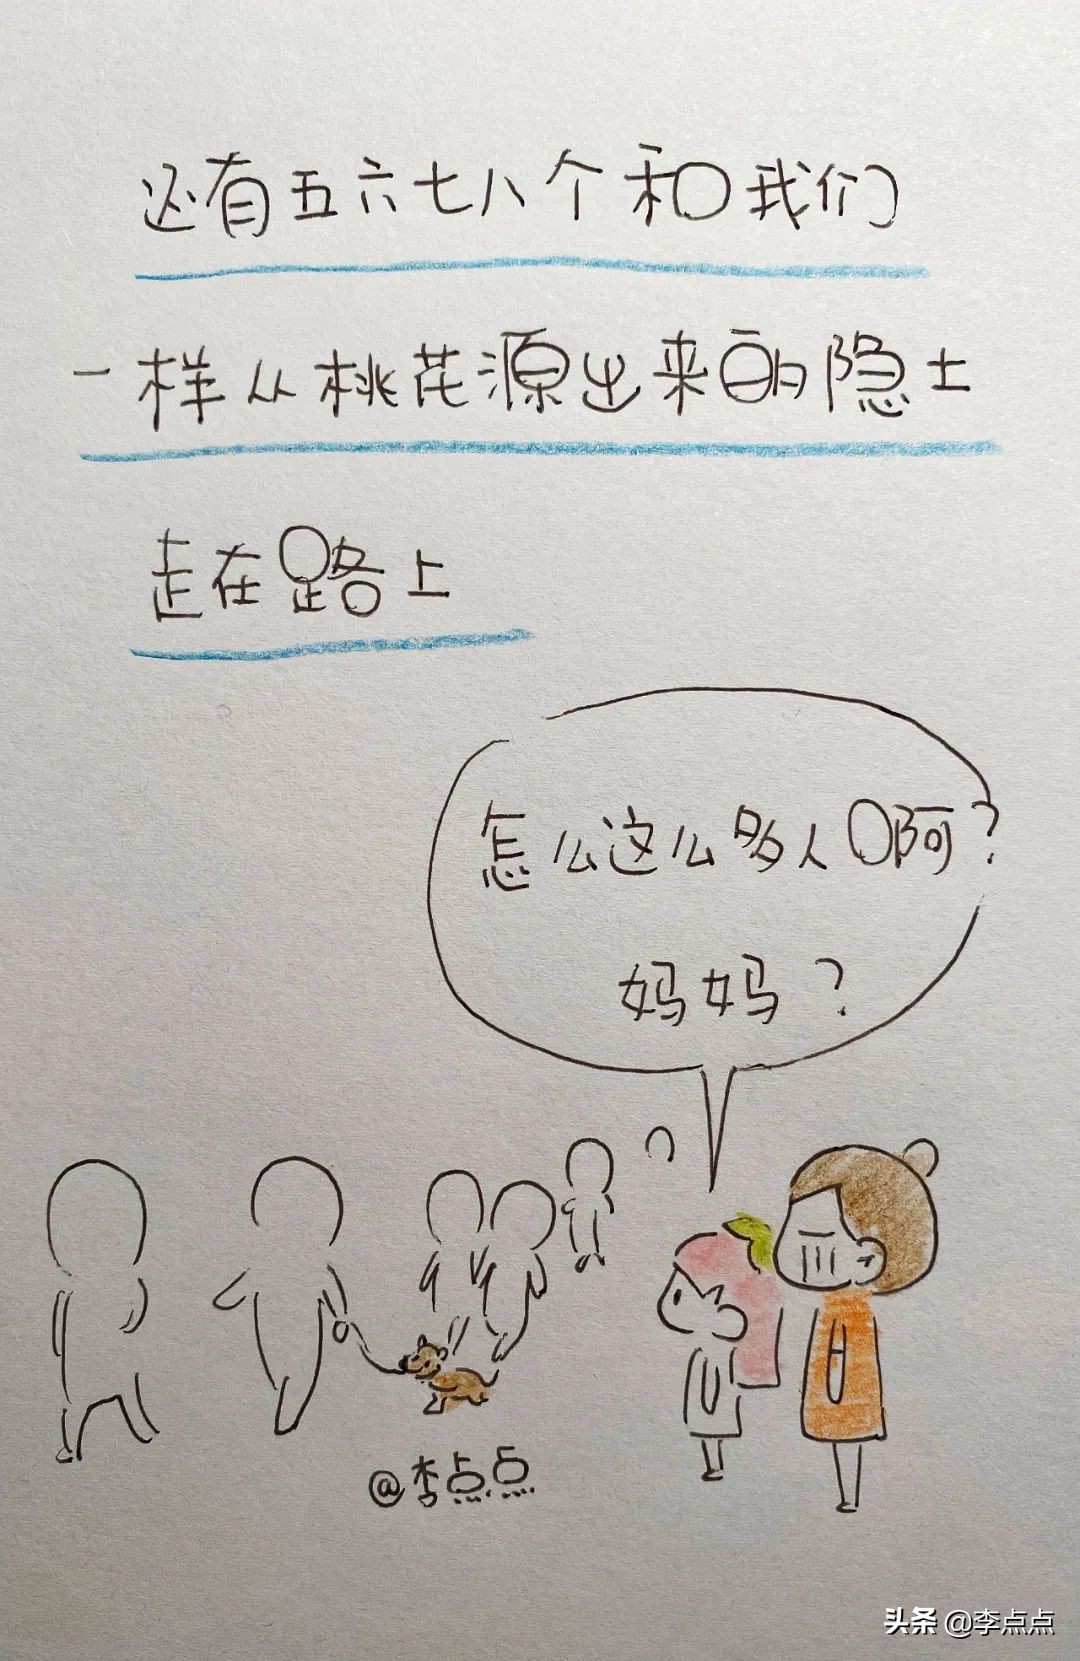 还有五六七八个和我们
一样从桃花源出来的隐士
走在路上
怎么这么多人啊?
妈妈?
@李点点
头条 @李点点